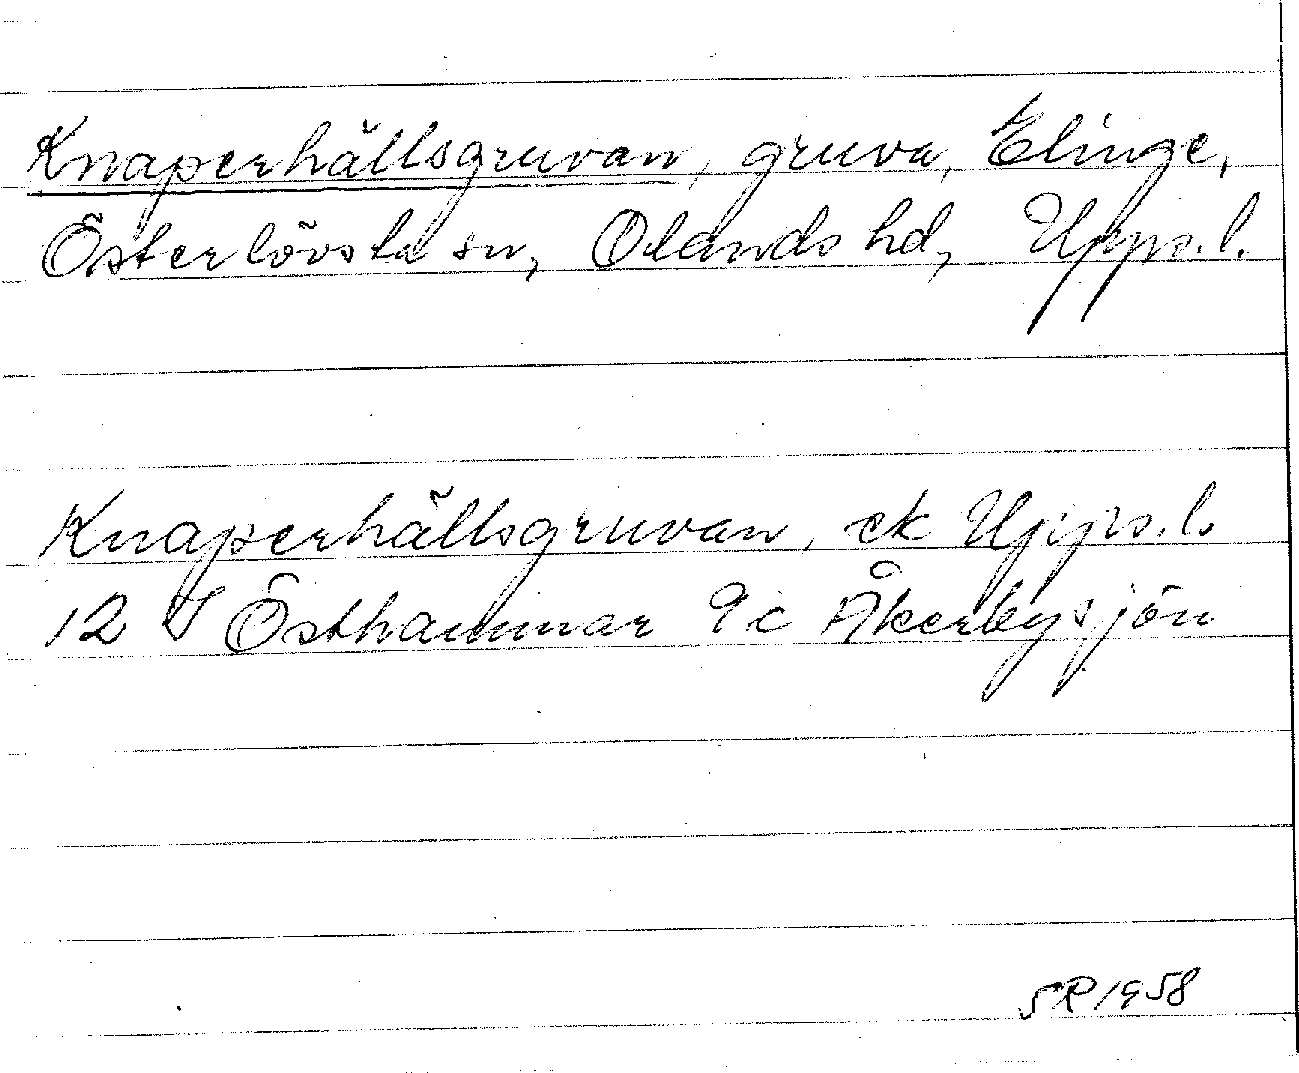 Knaperhällsgruvan, gruva, Elinge,
Österlövsta sn, Olands hd, Upps.l.
Knaperhällsgruvan, ek Upps.l.
12 I Östhammar 9c Åkerbysjön
SR 1958